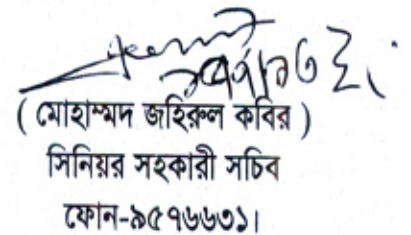 ( মোহাম্মদ জহিরুল কবির )
সিনিয়র সহকারী সচিব
ফোন-৯৫৭৬৬৩১।